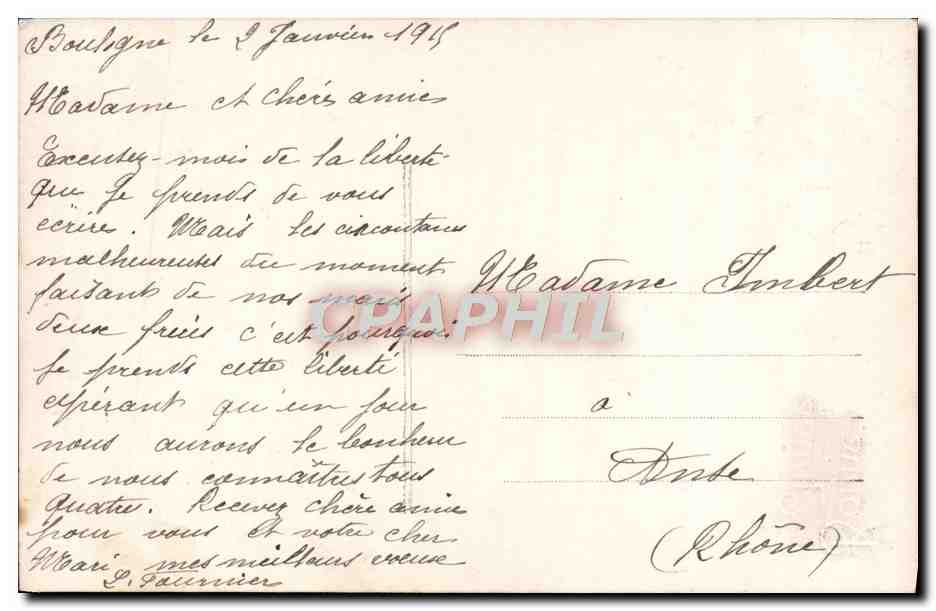 Boulogne le 2 Janvier 1915
Madame et chère amie
Excusez-mois de la liberté
que je prends de vous
écrire. Mais les circontances
malheureuses du moment
faisant de nos maris
deux frères c'est pourquoi
je prends cette liberté
espérant qu'un jour
nous aurons le bonheur
de nous connaîtres tous
quatre. Recevez chère amie
pour vous et votre cher
Mari mes meilleurs voeux
L. Fournier
Madame Imbert
à
Anse
(Rhône)
CPAPHIL